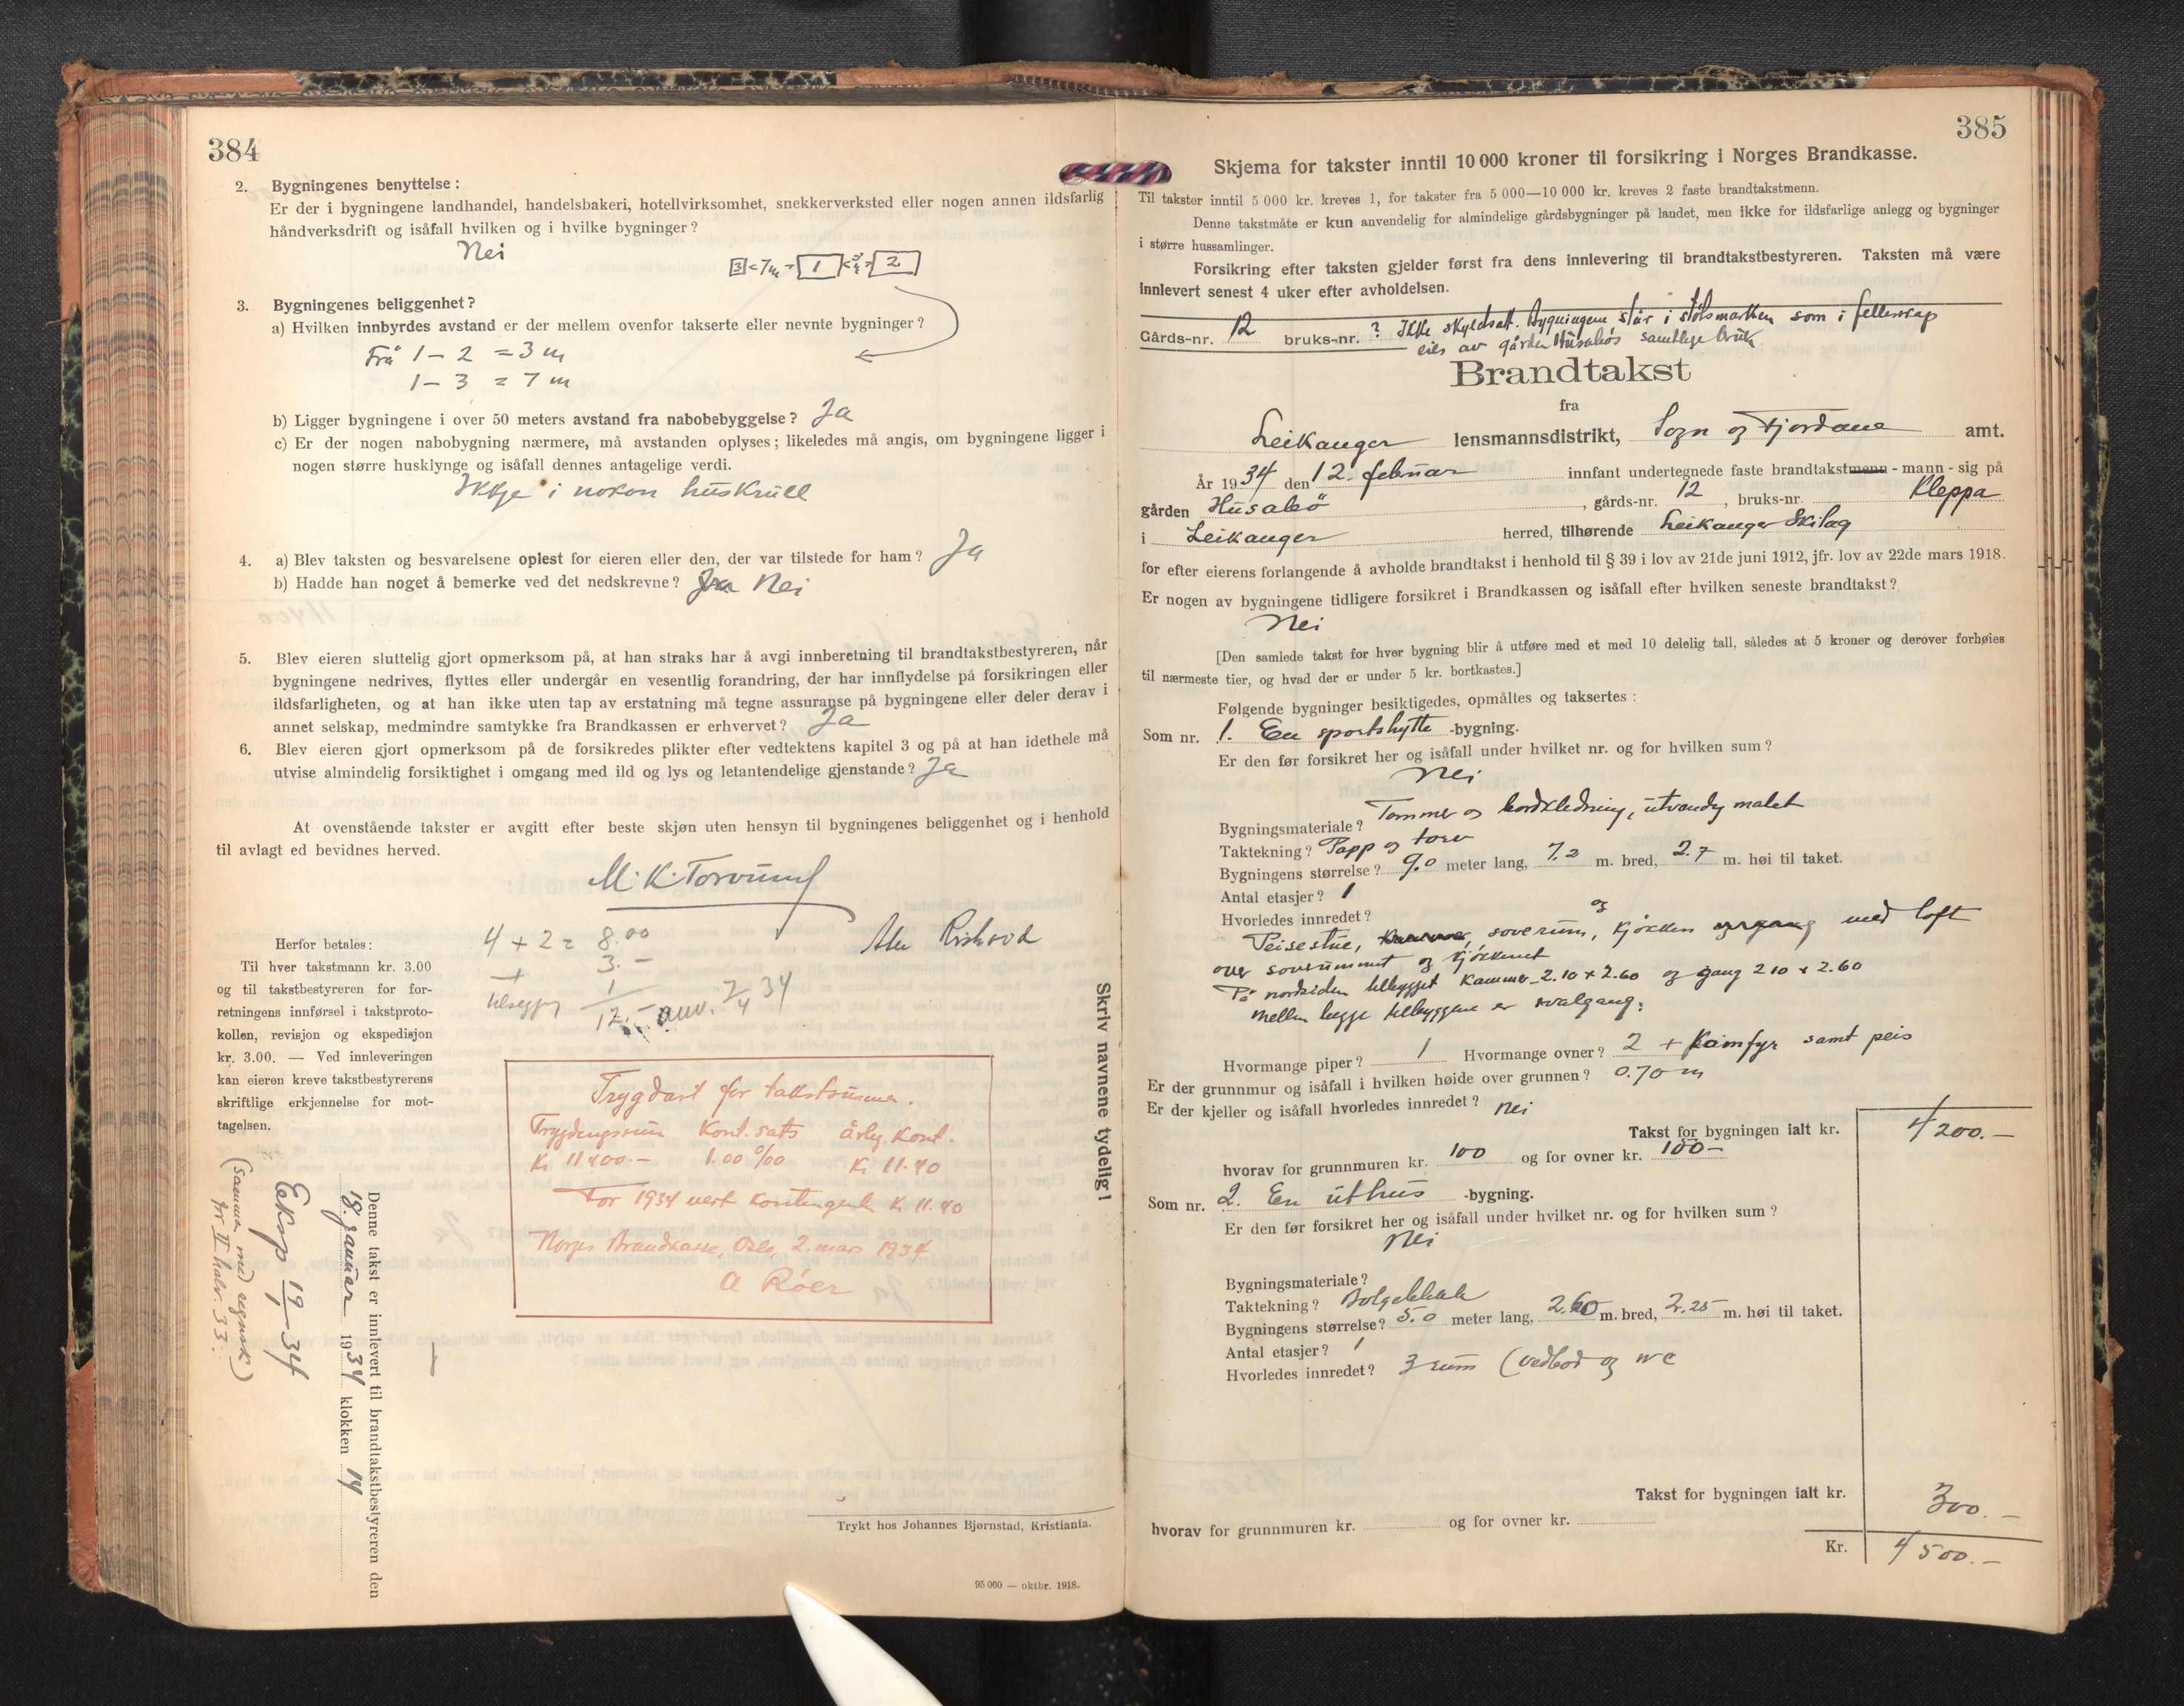 384
2. Bygningenes benyttelse :
Er der i bygningene landhandel, handelsbakeri, hotellvirksomhet, snekkerverksted eller nogen annen ildsfarlig
håndverksdrift og isåfall hvilken og i hvilke bygninger ?
Nei
3 < 7 m - 1 2
3. Bygningenes beliggenhet ?
a) Hvilken innbyrdes avstand er der mellem ovenfor takserte eller nevnte bygninger ?
Frå 1 – 2 = 3 m
1 – 3 = 7 m
b) Ligger bygningene i over 50 meters avstand fra nabobebyggelse ? Ja
c) Er der nogen nabobygning nærmere, må avstanden oplyses ; likeledes må angis, om bygningene ligger i
nogen større husklynge og isåfall dennes antagelige verdi.
Ikkje i nokon huskrull
4. a) Blev taksten og besvarelsene oplest for eieren eller den, der var tilstede for ham ? Ja
b) Hadde han noget å bemerke ved det nedskrevne ? Nei
5. Blev eieren sluttelig gjort opmerksom på, at han straks har å avgi innberetning til brandtakstbestyreren, når
bygningene nedrives, flyttes eller undergår en vesentlig forandring, der har innflydelse på forsikringen eller
ildsfarligheten, og at han ikke uten tap av erstatning må tegne assuranse på bygningene eller deler derav i
annet selskap, medmindre samtykke fra Brandkassen er erhvervet ? Ja
6. Blev eieren gjort opmerksom på de forsikredes plikter efter vedtektens kapitel 3 og på at han idethele må
utvise almindelig forsiktighet i omgang med ild og lys og letantendelige gjenstande ? Ja
At ovenstående takster er avgitt efter beste skjøn uten hensyn til bygningenes beliggenhet og i henhold
til avlagt ed bevidnes herved.
M. K. Torvund
4 + 2 = 8.00
3. –
1
12. – anv. 7/4 34
Herfor betales :
Til hver takstmann kr. 3.00
og til takstbestyreren for for-
retningens innførsel i takstproto-
kollen, revisjon og ekspedisjon
kr. 3.00. — Ved innleveringen
kan eieren kreve takstbestyrerens
skriftlige erkjennelse for mot-
tagelsen.
Trygdast for takstsummen.
Trygdingssum Kont.sats årlig kont.
Kr 11400.– 1.00 ‰ Kr 11.40
For 1934 vert kontingenten kr 11.40
Norges Brandkasse, Oslo, 2. mars 1934
A Røer
Denne takst er innlevert til brandtakstbestyreren den
18. januar 1934 klokken 14
Eksp 19/1 – 34
(Sammen med regnsk)
for II halv. 33.
Skriv navnene tydelig !
Trykt hos Johannes Bjørnstad, Kristiania.
95 000 — oktbr. 1918.
385
Skjema for takster inntil 10 000 kroner til forsikring i Norges Brandkasse.
Til takster inntil 5 000 kr. kreves 1, for takster fra 5 000—10 000 kr. kreves 2 faste brandtakstmenn.
Denne takstmåte er kun anvendelig for almindelige gårdsbygninger på landet, men ikke for ildsfarlige anlegg og bygninger
i større hussamlinger.
Forsikring efter taksten gjelder først fra dens innlevering til brandtakstbestyreren. Taksten må være
innlevert senest 4 uker efter avholdelsen.
Gårds-nr. 12 bruks-nr. ? Ikke skyldsatt. Bygningene står i stølsmarken som i fellesskap
eies av gården Husabøs samtlige bruk
Brandtakst
fra
Leikanger lensmannsdistrikt, Sogn og Fjordane amt.
År 1934 den 12. februar innfant undertegnede faste brandtakstmenn - mann - sig på
gården Husabø, gårds-nr. 12, bruks-nr. Kleppa
i Leikanger herred, tilhørende Leikanger Skilag
for efter eierens forlangende å avholde brandtakst i henhold til § 39 i lov av 21de juni 1912, jfr. lov av 22de mars 1918.
Er nogen av bygningene tidligere forsikret i Brandkassen og isåfall efter hvilken seneste brandtakst ?
Nei
[Den samlede takst for hver bygning blir å utføre med et med 10 delelig tall, således at 5 kroner og derover forhøies
til nærmeste tier, og hvad der er under 5 kr. bortkastes.]
Følgende bygninger besiktigedes, opmåltes og taksertes :
Som nr. 1. En sportshytte -bygning.
Er den før forsikret her og isåfall under hvilket nr. og for hvilken sum ?
Nei
Bygningsmateriale ? Tømmer og bordkledning, utvendig malet
Taktekning ? Papp og torv
Bygningens størrelse ? 9.0 meter lang, 7.2 m. bred, 2.7 m. høi til taket.
Antal etasjer ? 1
Hvorledes innredet ?
Peisestue, soverum, og kjøkken med loft
over soverummet og kjøkkenet
På nordsiden tilbygget kammer 2.10 x 2.60 og gang 2 10 x 2.60
mellem begge tilbyggene er svalgang.
Hvormange piper ? 1 Hvormange ovner ? 2 + komfyr samt peis
Er der grunnmur og isåfall i hvilken høide over grunnen ? 0.70 m
Er der kjeller og isåfall hvorledes innredet ? nei
Takst for bygningen ialt kr. 4200.–
hvorav for grunnmuren kr. 100 og for ovner kr. 100–
Som nr. 2. En uthus -bygning.
Er den før forsikret her og isåfall under hvilket nr. og for hvilken sum ?
Nei
Bygningsmateriale ?
Taktekning ? Bølgeblikk
Bygningens størrelse ? 5.0 meter lang, 2.60 m. bred, 2.25 m. høi til taket.
Antal etasjer ? 1
Hvorledes innredet ? 3 rum (vedbod og wc
Takst for bygningen ialt kr. 300.–
hvorav for grunnmuren kr. og for ovner kr.
Kr. 4500.–